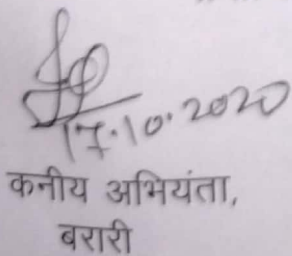 17.10.2020
कनीय अभियंता,
बरारी